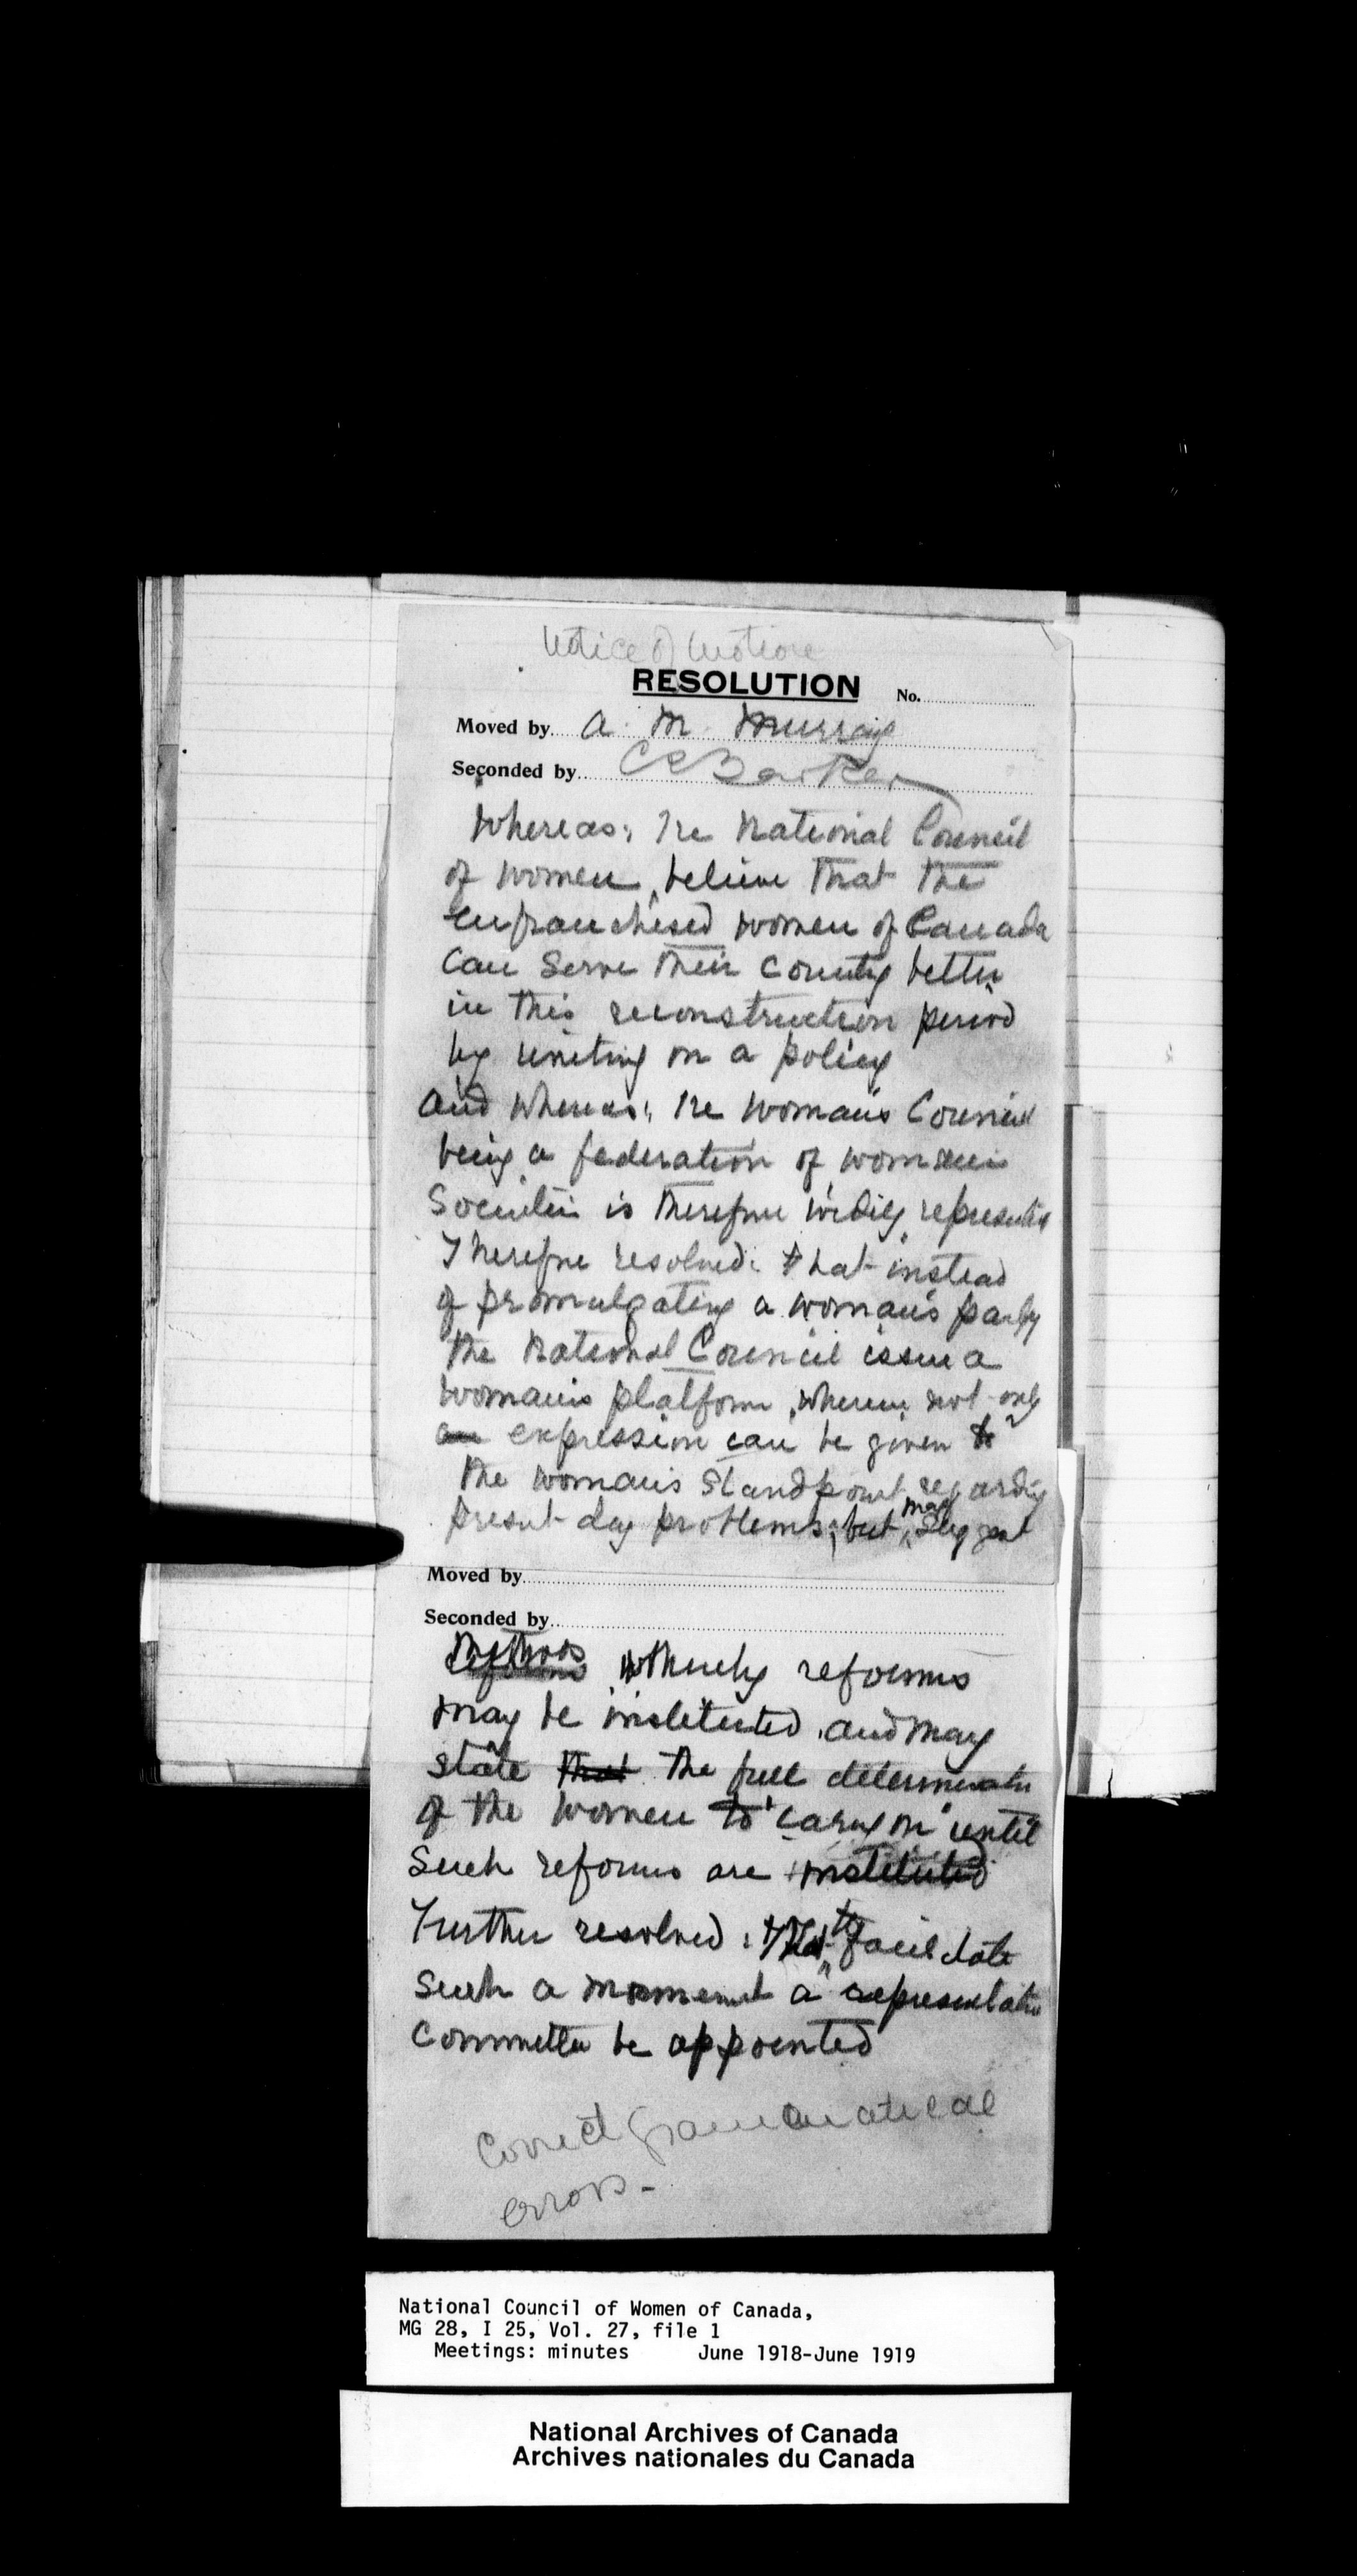 Notice of Motion
RESOLUTION No.
Moved by A. M. Murray
Seconded by C E Barker
Whereas: The National Council
of Women, believe that the
enfranchised women of Canada
can serve their country better
in this reconstruction period
by uniting on a policy
And whereas: The Woman's Council
being a federation of woman's
Societies is therefore widely representative
Therefore resolved: that instead
of promulgating a woman's party
the National Council issue a
woman's platform, wherein not only
an expression can be given to
the woman's standpoint regarding
present day problems; but may suggest
Moved by
Seconded by
methods whereby reforms
may be instituted, and may
state that the full determination
of the women to "carry on" until
such reforms are instituted
Further resolved: that to facilitate
such a movement a representative
Committee be appointed
Correct grammatical
errors-
National Council of Women of Canada,
MG 28, I 25, Vol. 27, file 1
Meetings: minutes June 1918-June 1919
National Archives of Canada
Archives nationales du Canada